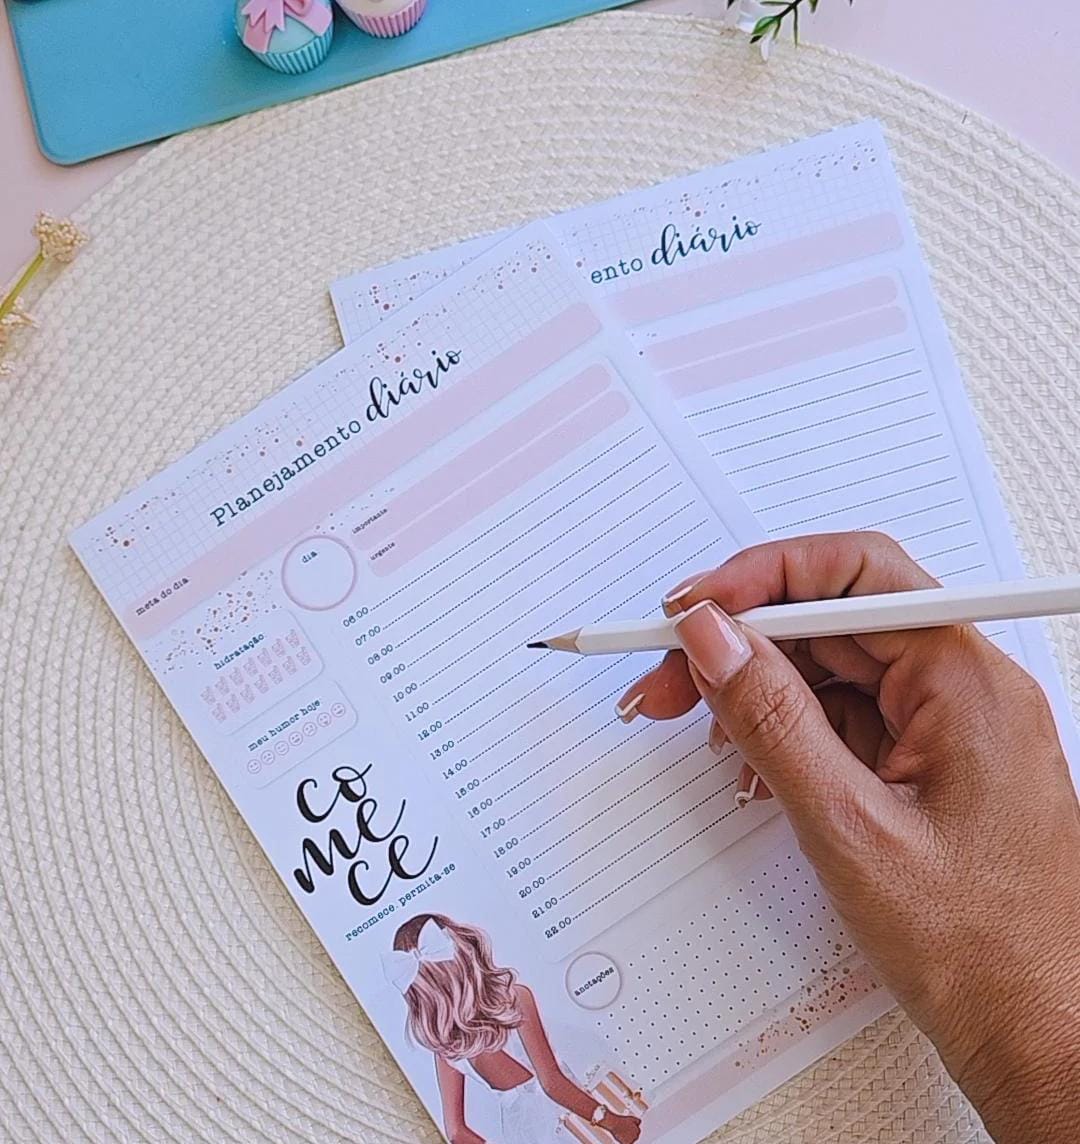 Planejamento diário
meta do dia
dia
importante
urgente
hidratação
meu humor hoje
06:00
07:00
08:00
09:00
10:00
11:00
12:00
13:00
14:00
15:00
16:00
17:00
18:00
19:00
20:00
21:00
22:00
co
me
ce
recomece. permita-se
anotações
ento diário